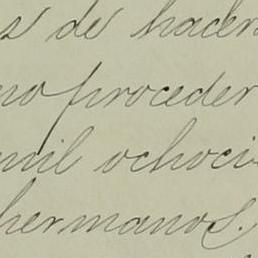 s de hacer
no proceder
mil ochoci
hermanos.